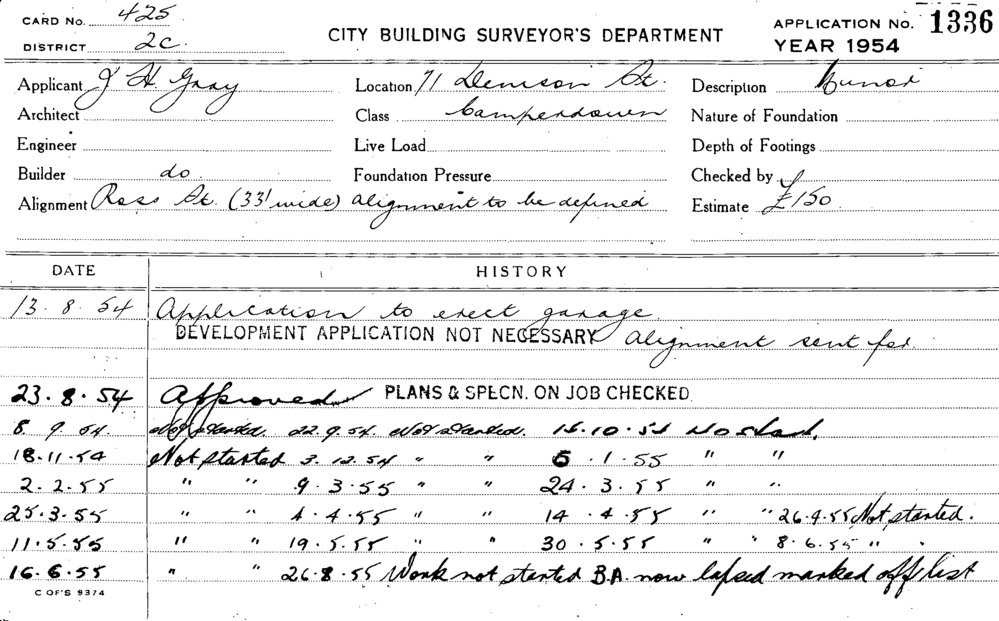 CARD No. 425
DISTRICT 2C.
CITY BUILDING SURVEYOR'S DEPARTMENT
APPLICATION No. 1336
YEAR 1954
Applicant J H Gray Location 71 Denison St. Description Minor
Architect Class Camperdown Nature of Foundation
Engineer Live Load Depth of Footings
Builder do Foundation Pressure Checked by
Alignment Ross St. (33' wide) alignment to be defined Estimate £150
DATE HISTORY
13.8.54 Application to erect garage
DEVELOPMENT APPLICATION NOT NECESSARY Alignment sent for
23.8.54 Approved PLANS & SPECN. ON JOB CHECKED
8.9.54. Not started. 22.9.54. Not started. 15.10.54 No start.
18.11.54 Not started 3.12.54 " " 5.1.55 " "
2.2.55 " " 9.3.55 " " 24.3.55 " "
25.3.55 " " 4.4.55 " " 14.4.55 " " 26.4.55 Not started.
11.5.55 " " 19.5.55 " " 30.5.55 " " 8.6.55 " "
16.6.55 " " 26.8.55 Work not started B.A. now lapsed marked off list
C OF'S 9374